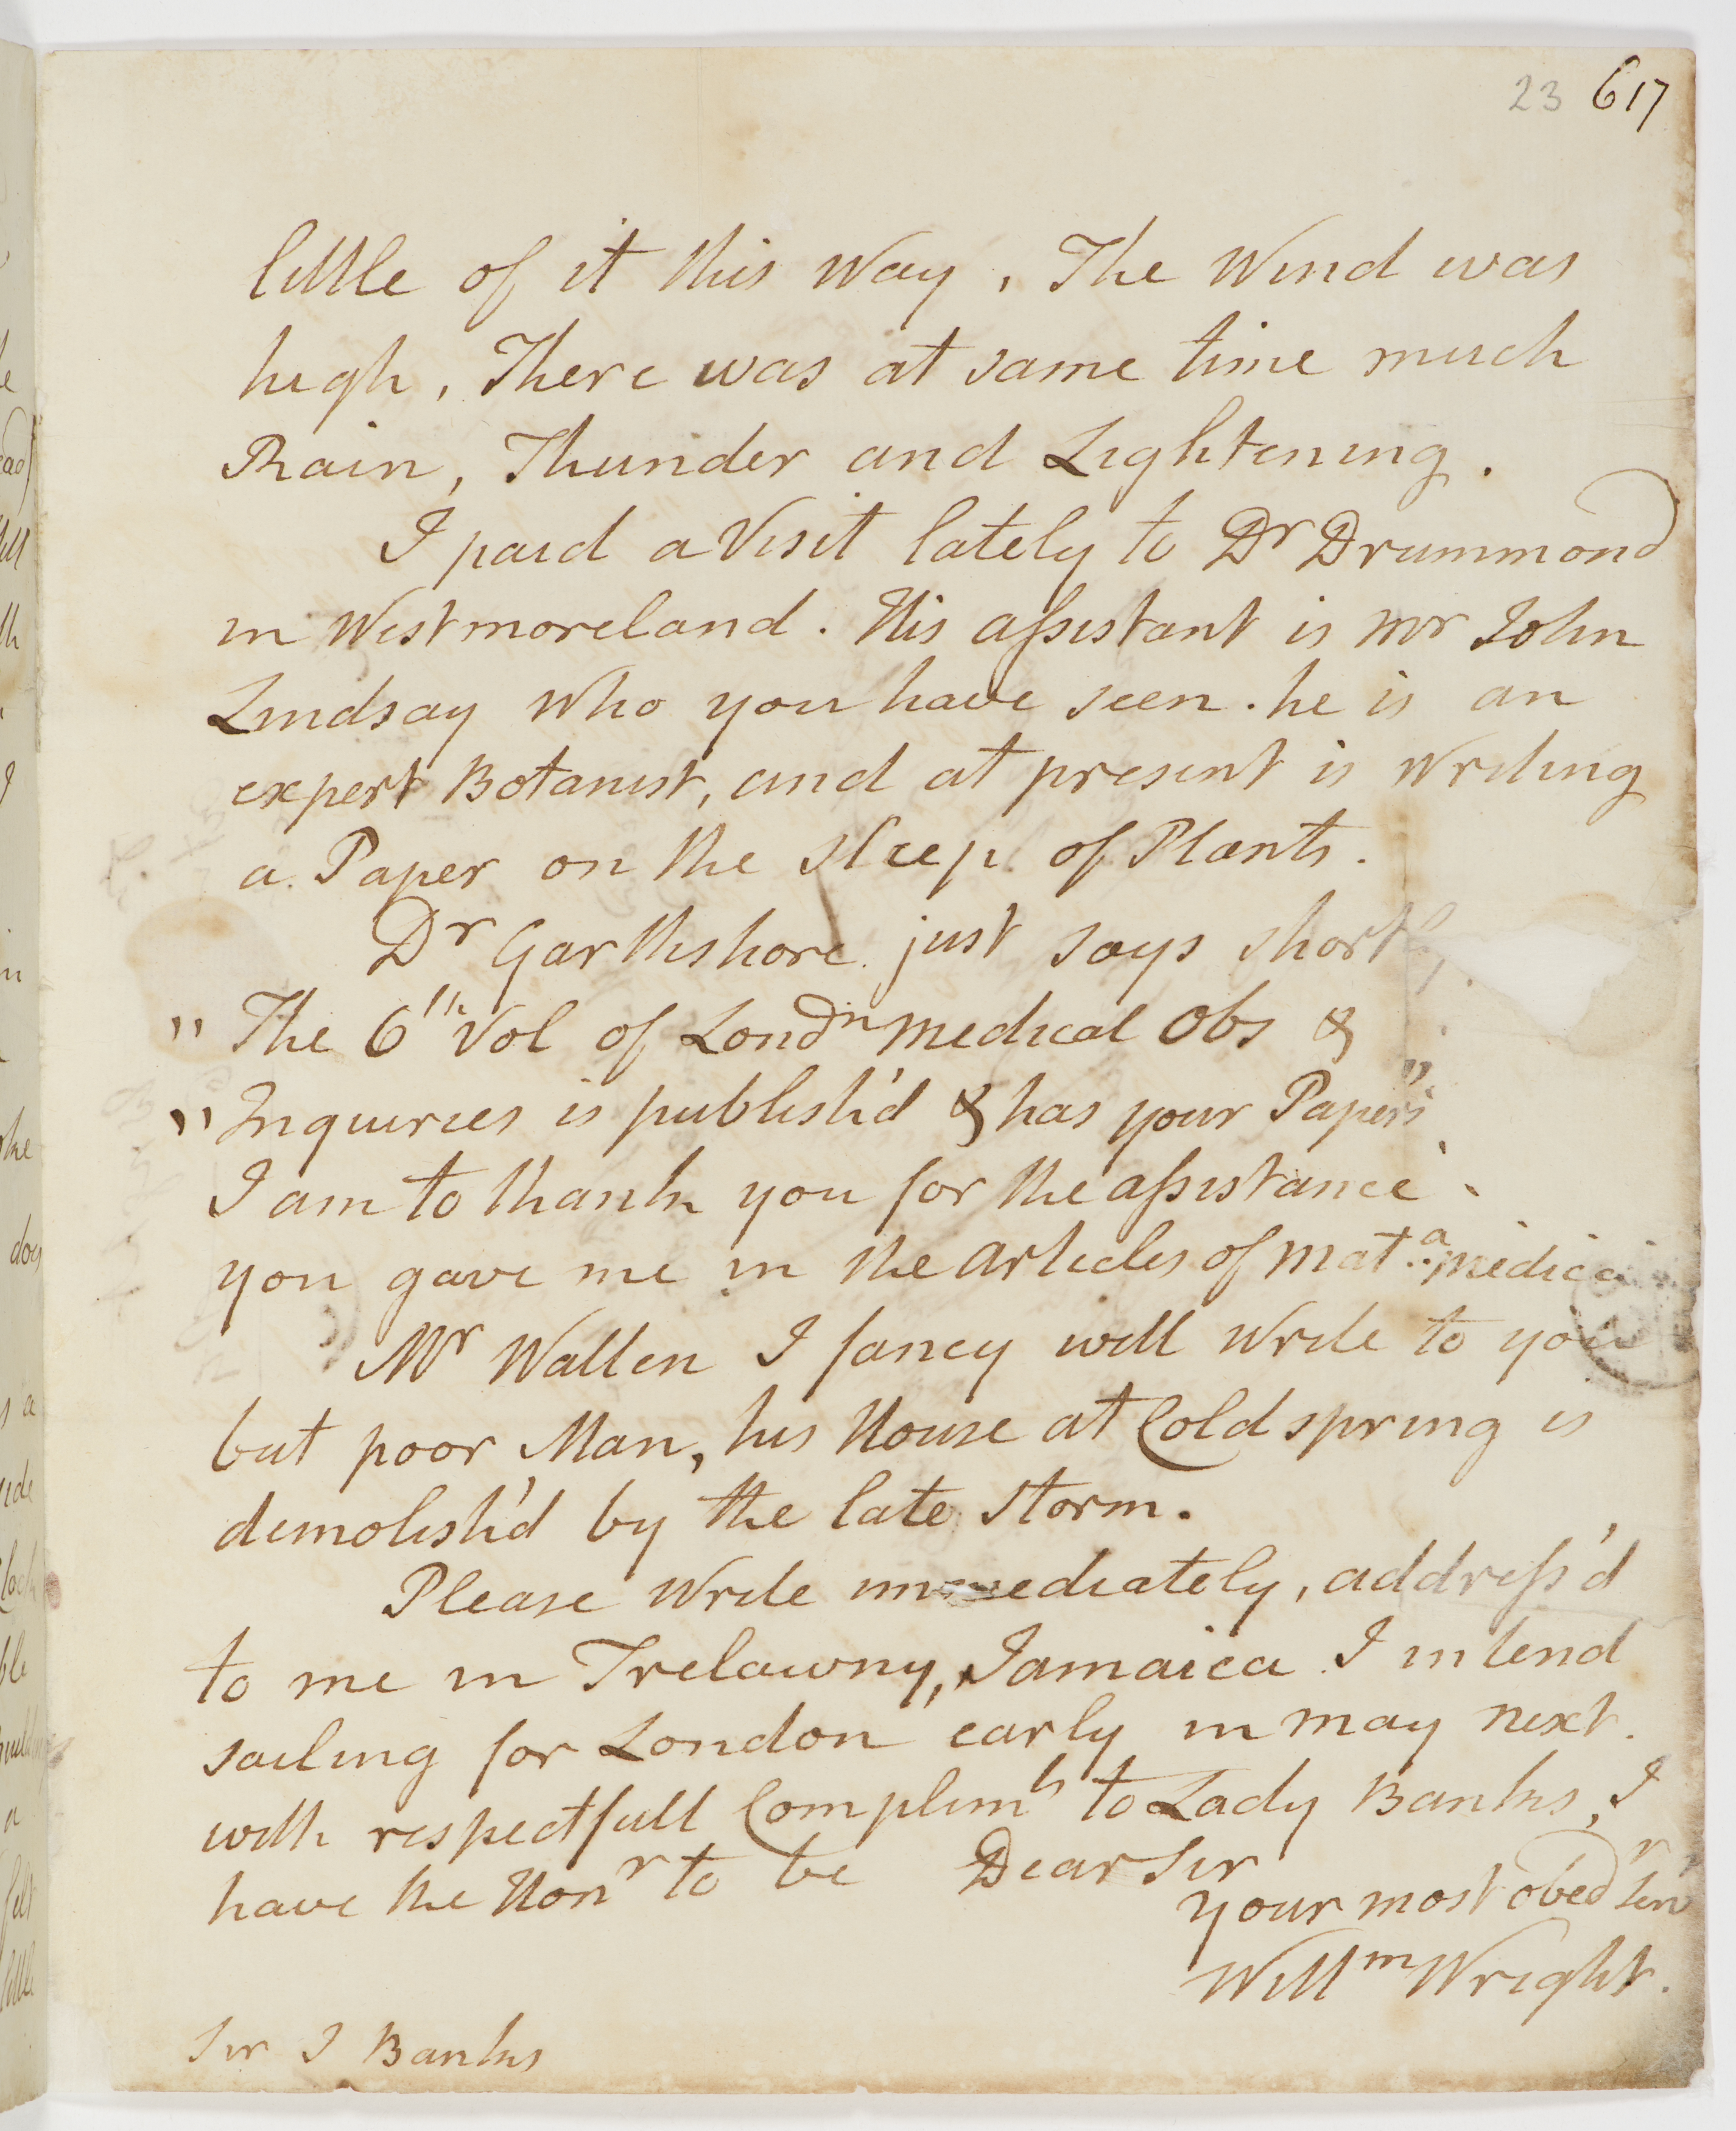 23 617
little of it this Way, The Wind was
high, There was at same time much
Rain, Thunder and Lightening.
I paid a Visit lately to Dr Drummond
in Westmoreland. His assistant is Mr John
Lindsay Who you have seen. he is an
expert Botanist, and at present is Writing
a Paper on the sleep of Plants.
Dr Garthshore just says short
" The 6th Vol of Londn medical Obs &
" Inquiries is publish'd & has your Papers"
I am to thank you for the assistance
you gave me in the articles of Mata medica
Mr Wallen I fancy will Write to you
but poor Man, his House at Cold spring is
demolish'd by the late storm.
Please Write immediately, address'd
to me in Trelawny, Jamaica I intend
sailing for London early in May next.
with respectfull Complimts to Lady Banks, I
have the Honr to be Dear Sir
your most obedr Serv
Willm Wright.
Sir J Banks